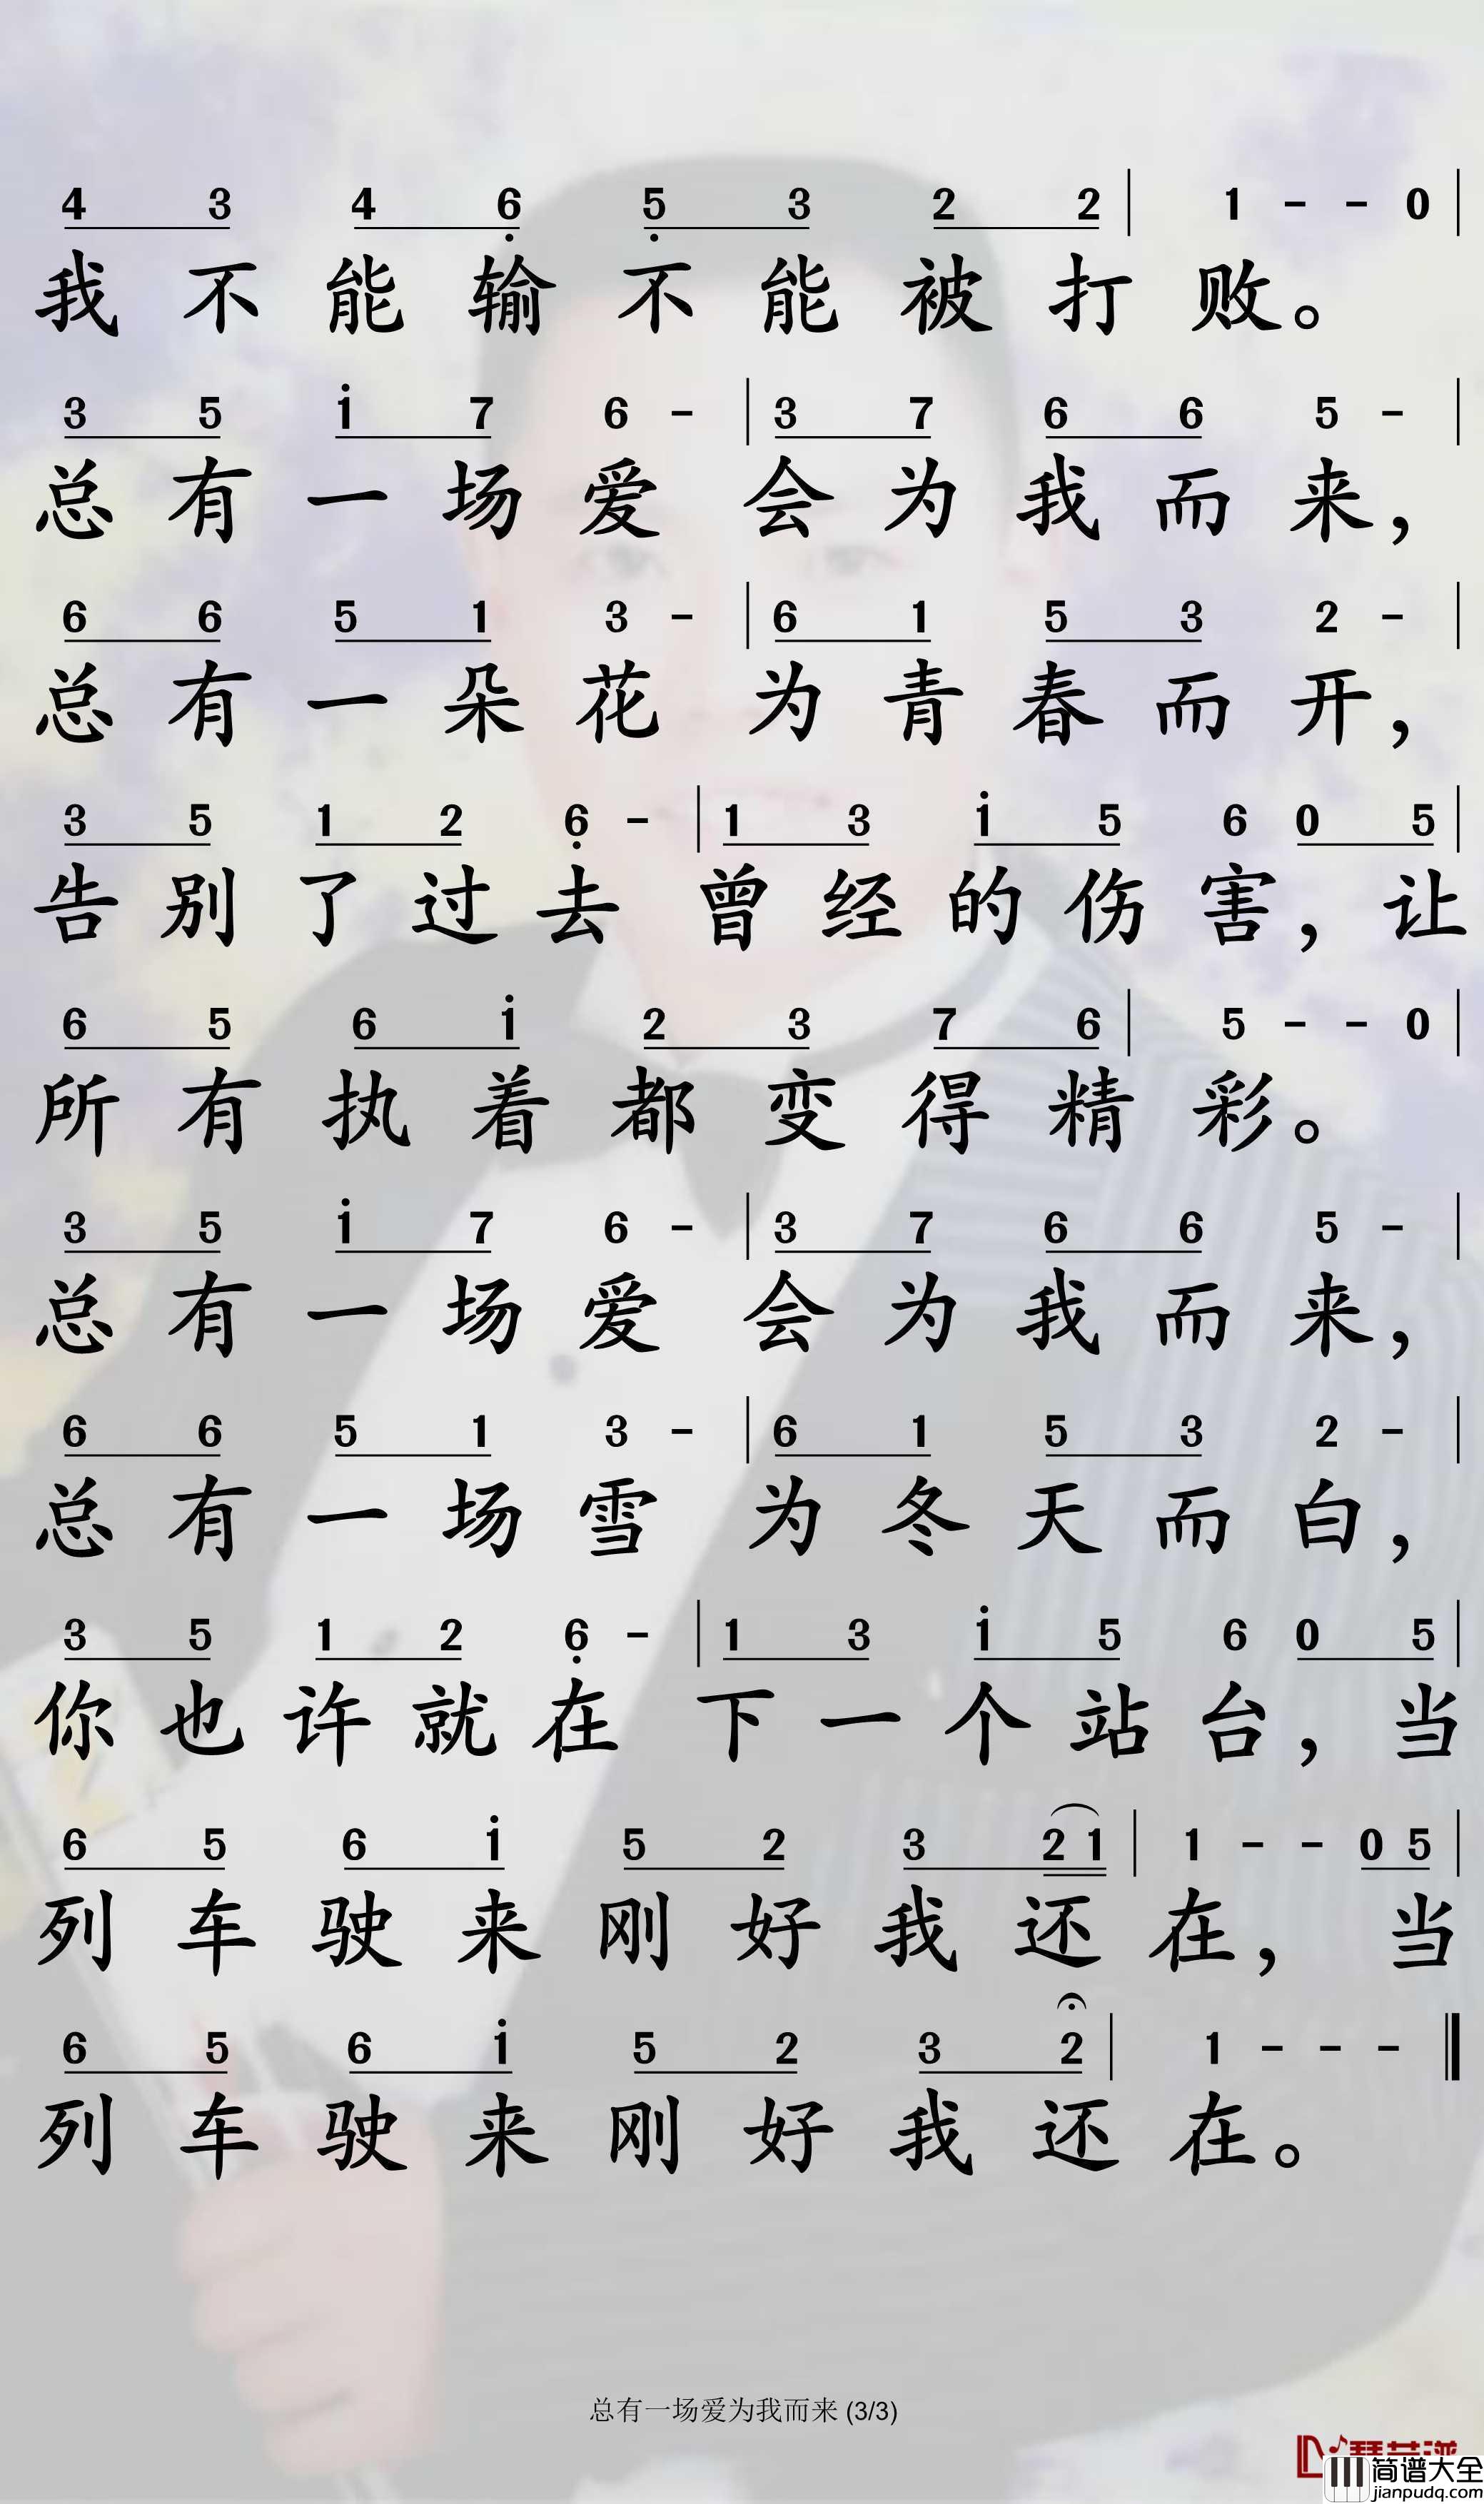 4 3 4 6̣ 5̣ 3 2 2 | 1 - - 0 |
我不能输不能被打败。
3 5 1̇ 7 6 - | 3 7 6 6 5 - |
总有一场爱会为我而来，
6 6 5 1 3 - | 6 1 5 3 2 - |
总有一朵花为青春而开，
3 5 1 2 6̣ - | 1 3 1̇ 5 6 0 5 |
告别了过去曾经的伤害，让
6 5 6 1̇ 2 3 7 6 | 5 - - 0 |
所有执着都变得精彩。
3 5 1̇ 7 6 - | 3 7 6 6 5 - |
总有一场爱会为我而来，
6 6 5 1 3 - | 6 1 5 3 2 - |
总有一场雪为冬天而白，
3 5 1 2 6̣ - | 1 3 1̇ 5 6 0 5 |
你也许就在下一个站台，当
6 5 6 1̇ 5 2 3 2 1 | 1 - - 0 5 |
列车驶来刚好我还在，当
6 5 6 1̇ 5 2 3 2 | 1 - - - ‖
列车驶来刚好我还在。
总有一场爱为我而来 (3/3)
简谱大全
jianpudq.com